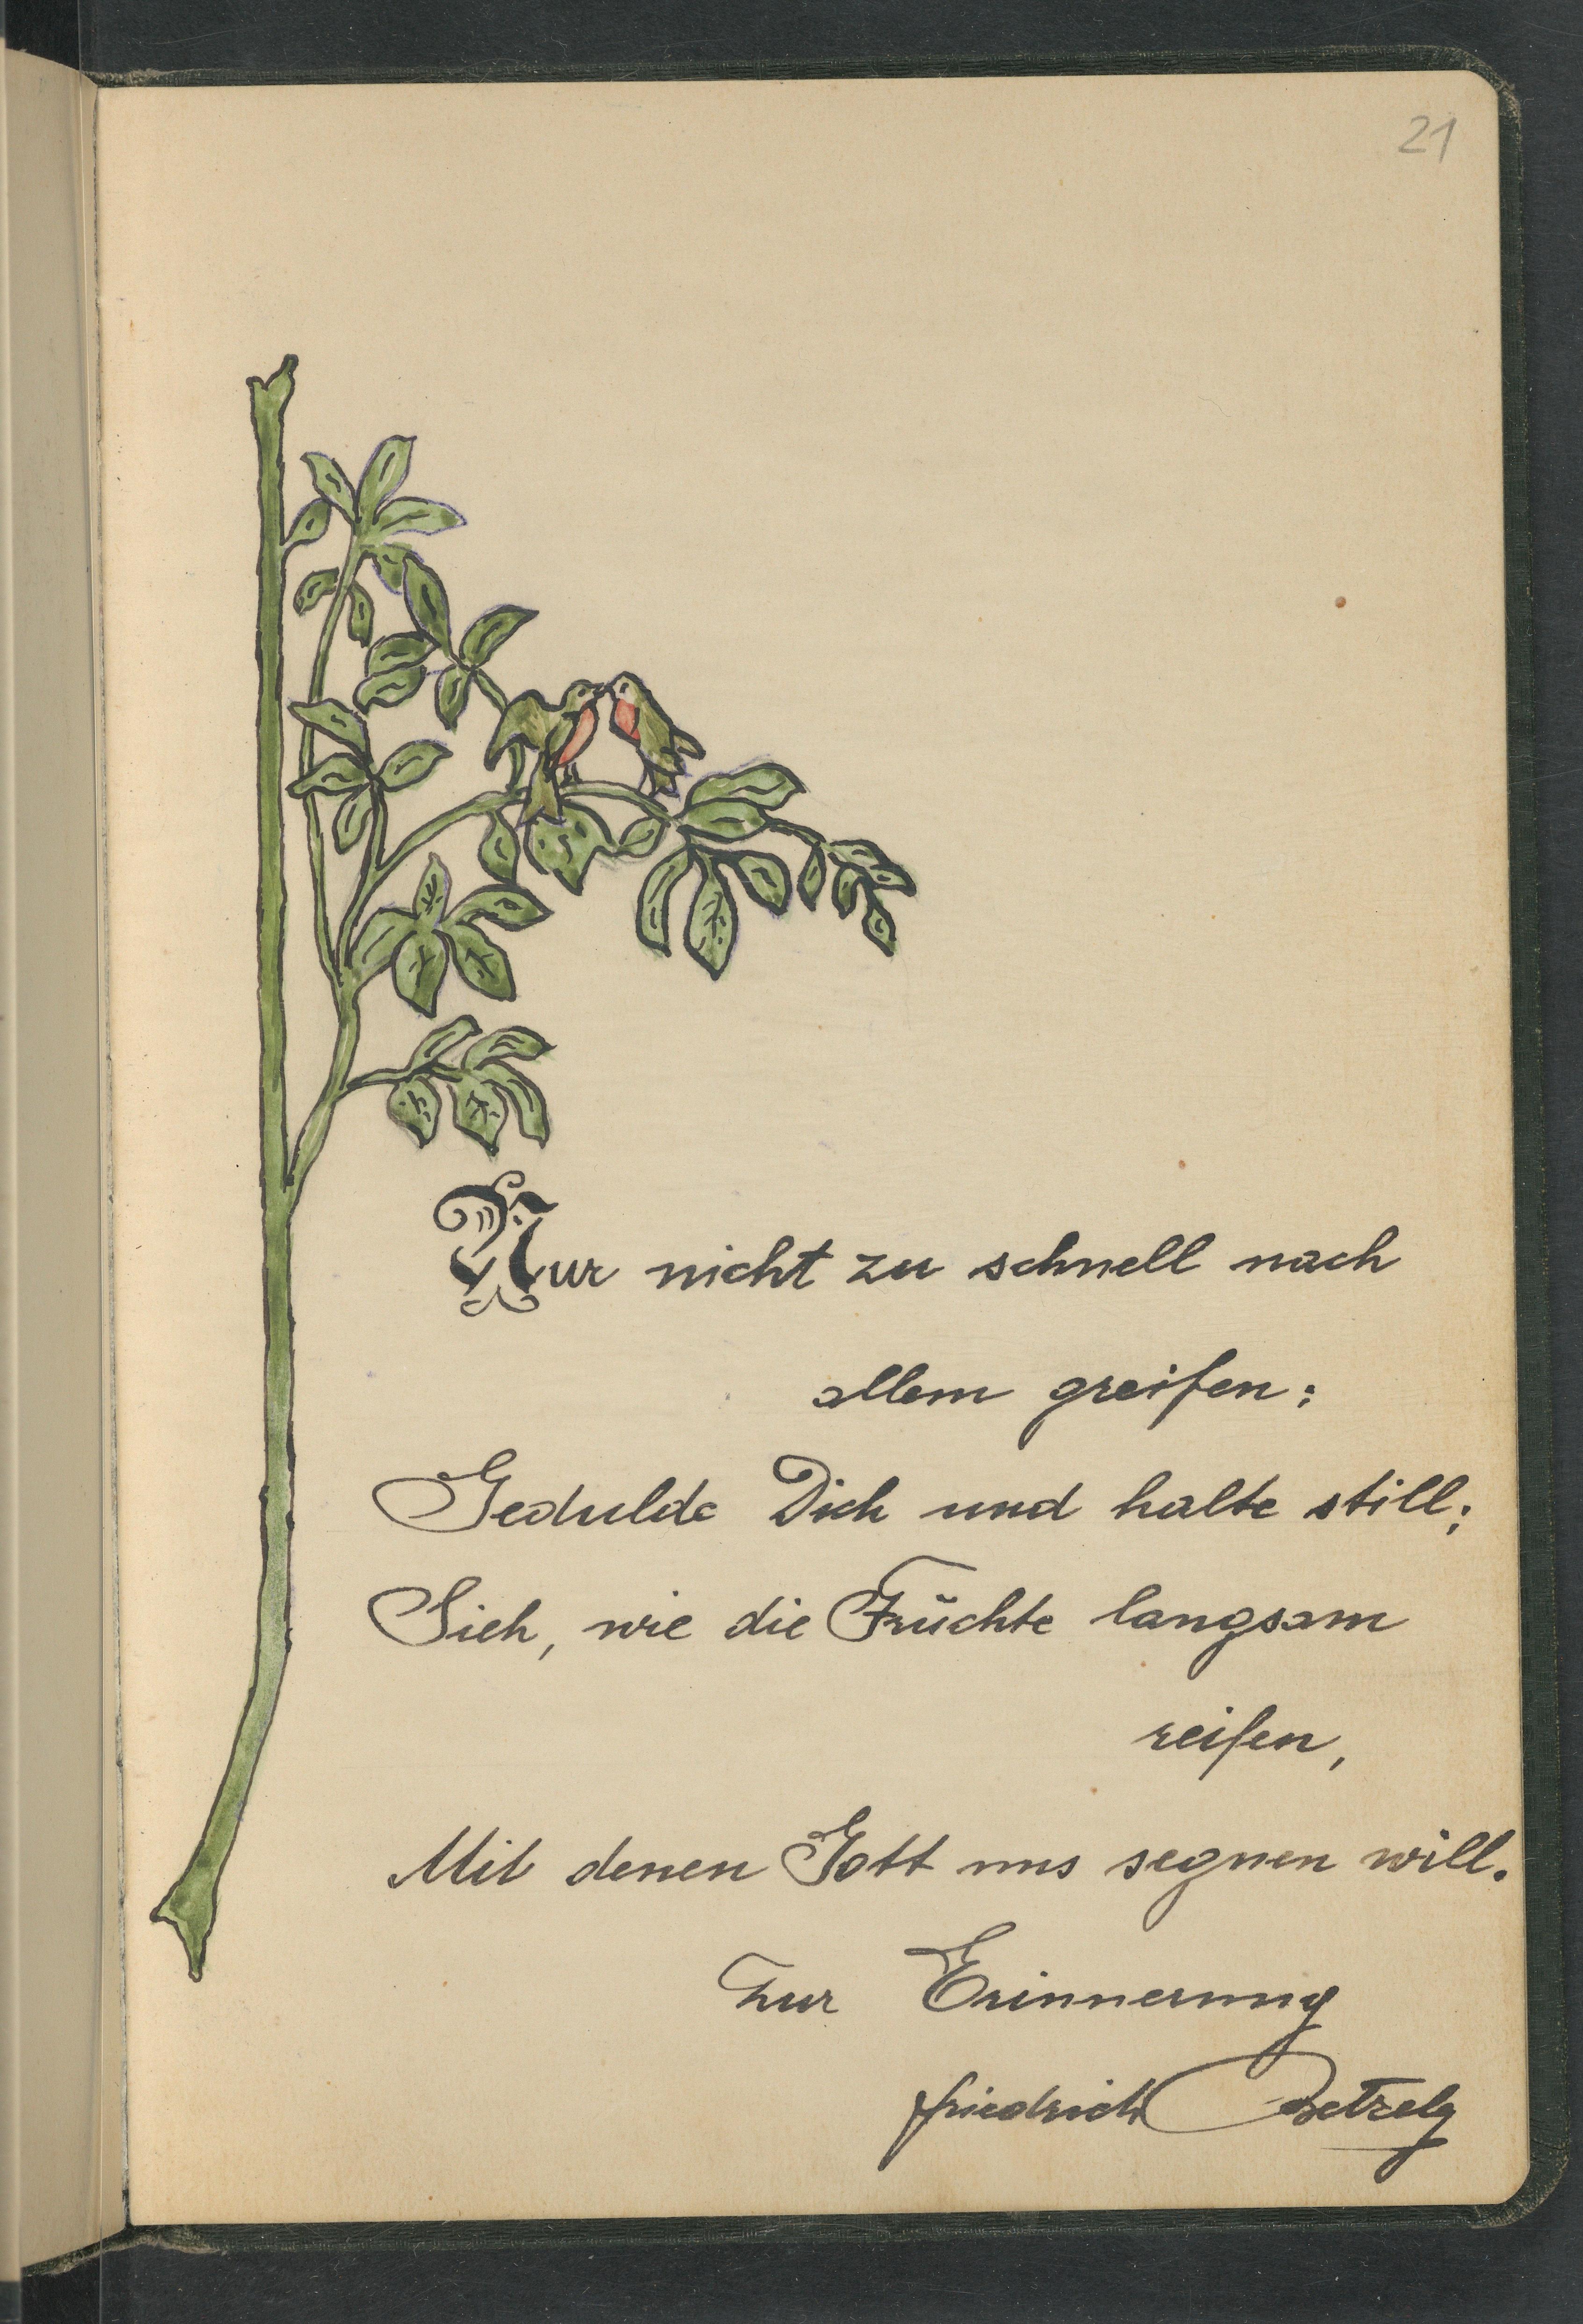 21
Nur nicht zu schnell nach
allem greifen;
Gedulde Dich und halte still;
Sieh, wie die Früchte langsam
reifen,
Mit denen Gott uns segnen will.
Zur Erinnerung
Friedrich